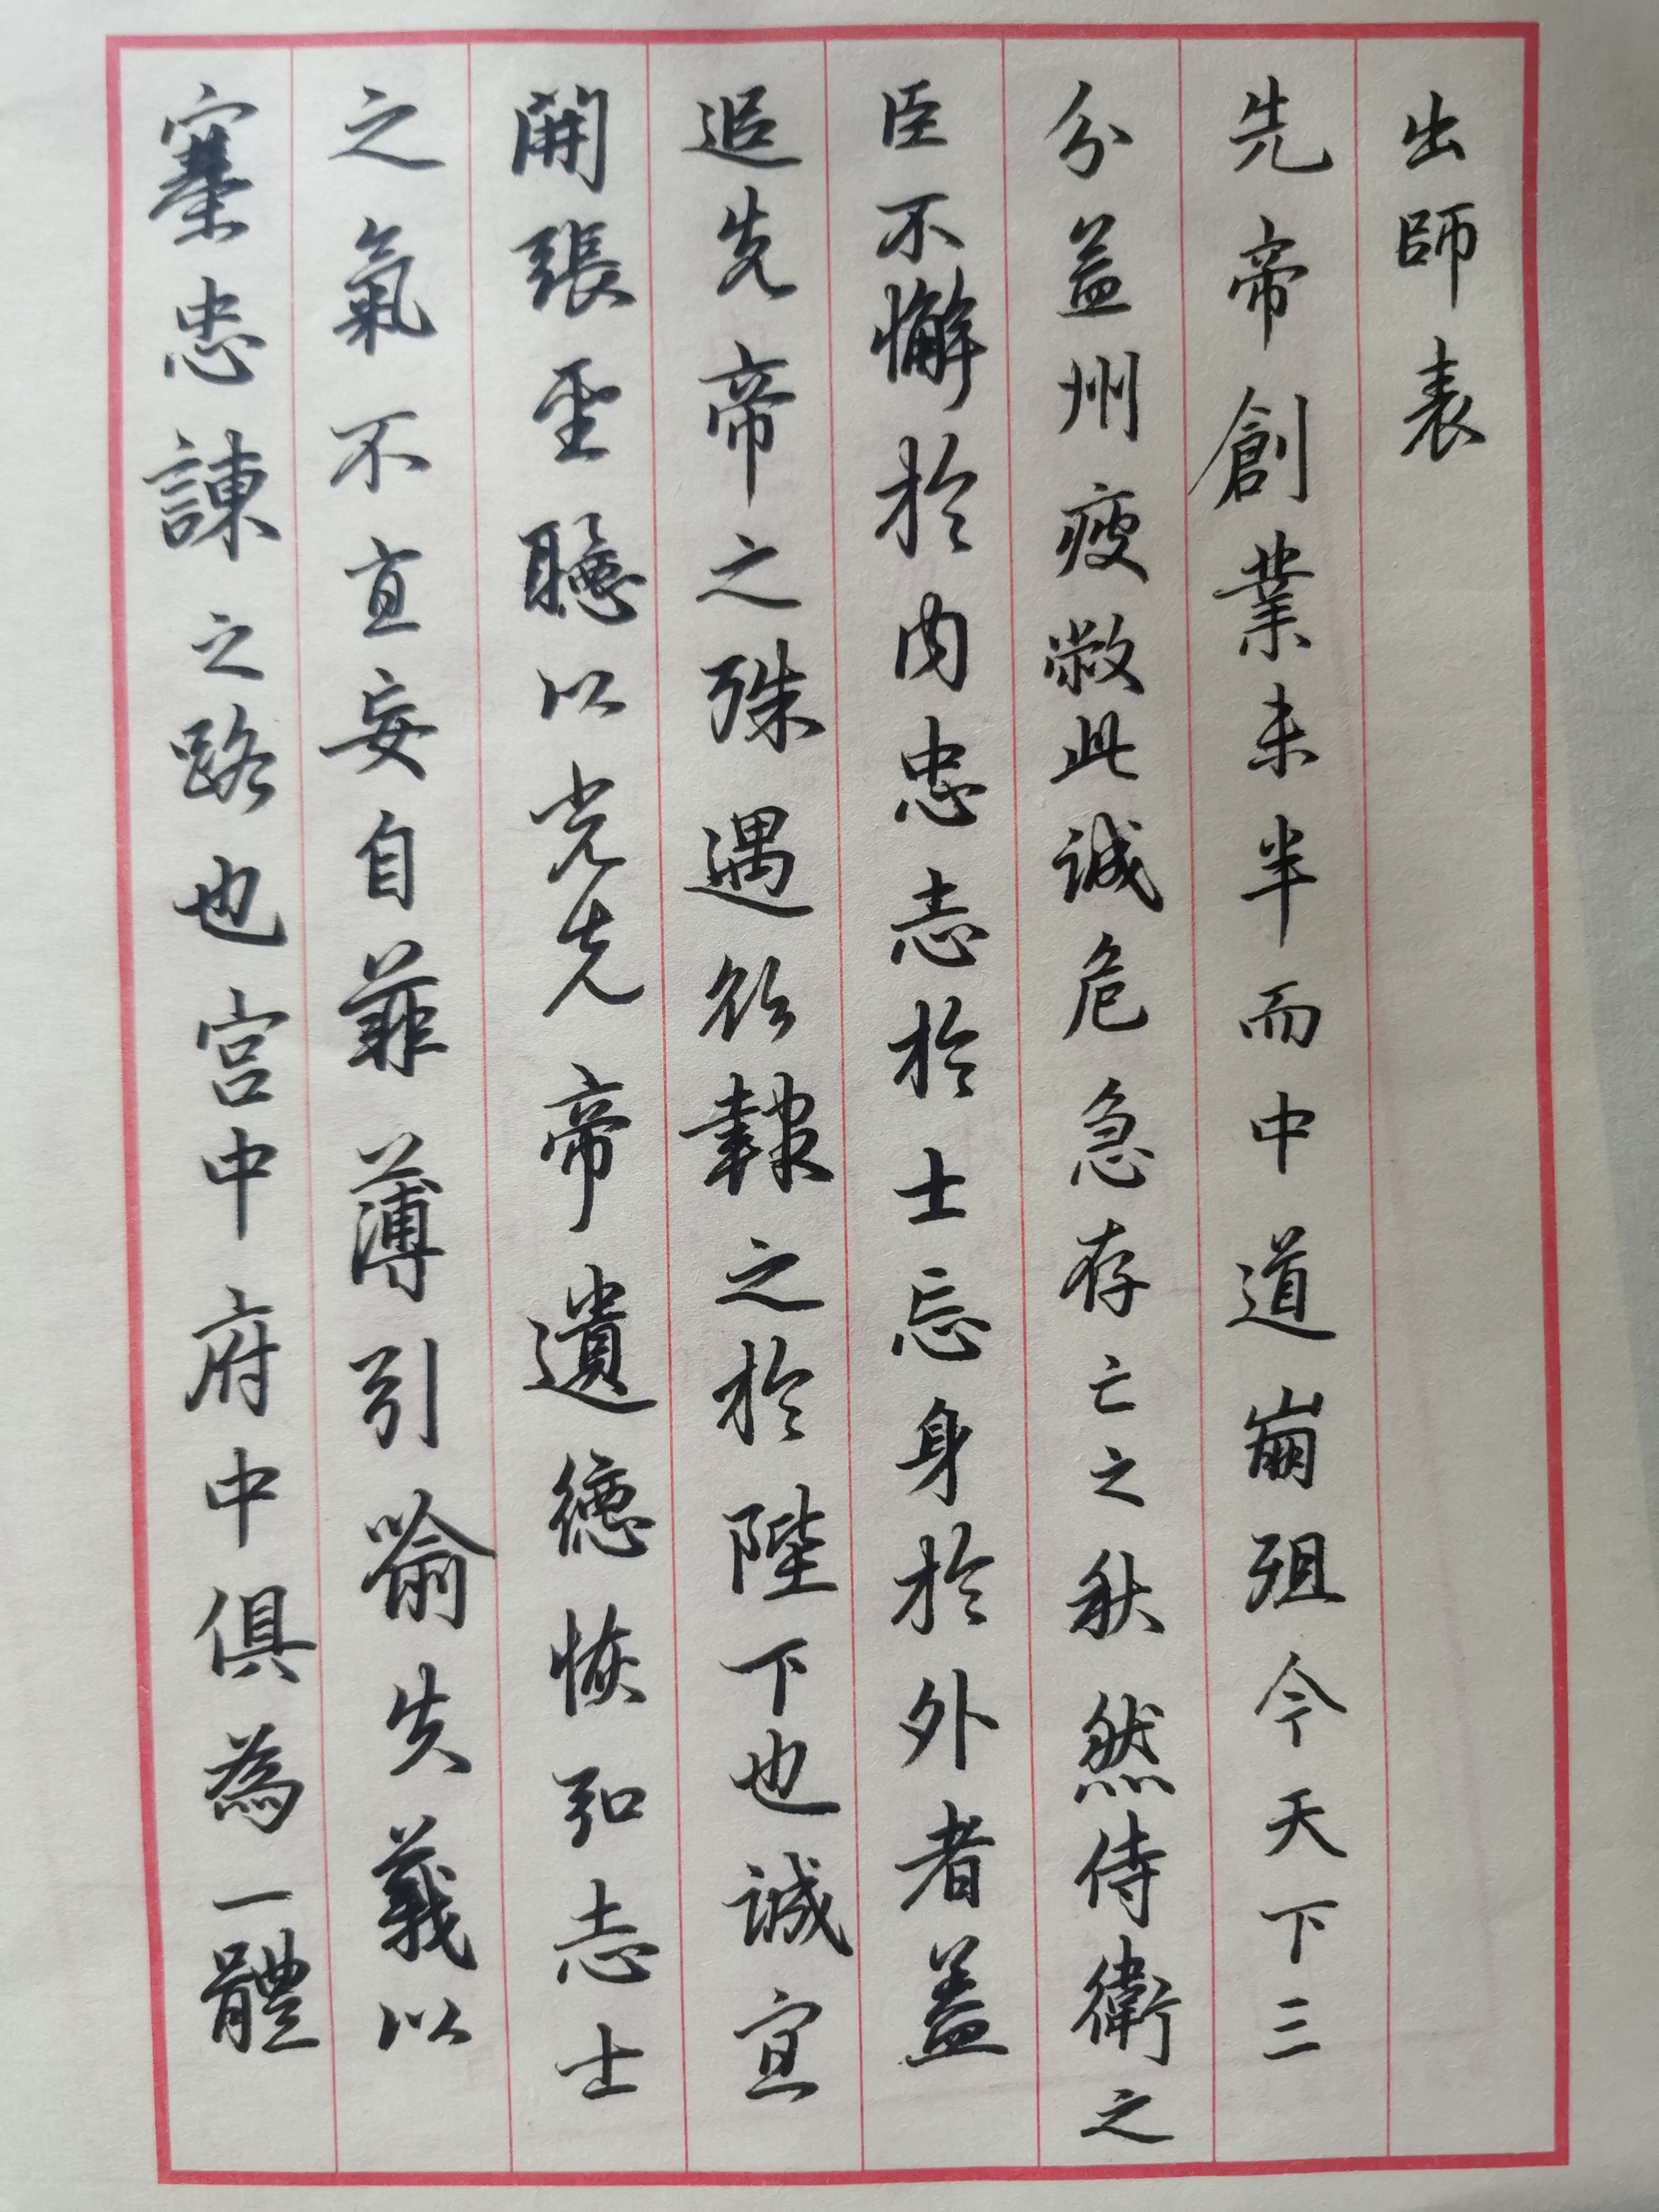 出師表
先帝創業未半而中道崩殂今天下三
分益州疲敝此誠危急存亡之秋然侍衛之
臣不懈於內忠志於士忘身於外者蓋
追先帝之殊遇欲報之於陛下也誠宜
開張聖聽以光先帝遺德恢弘志士
之氣不宜妄自菲薄引喻失義以
塞忠諫之路也宮中府中俱為一體